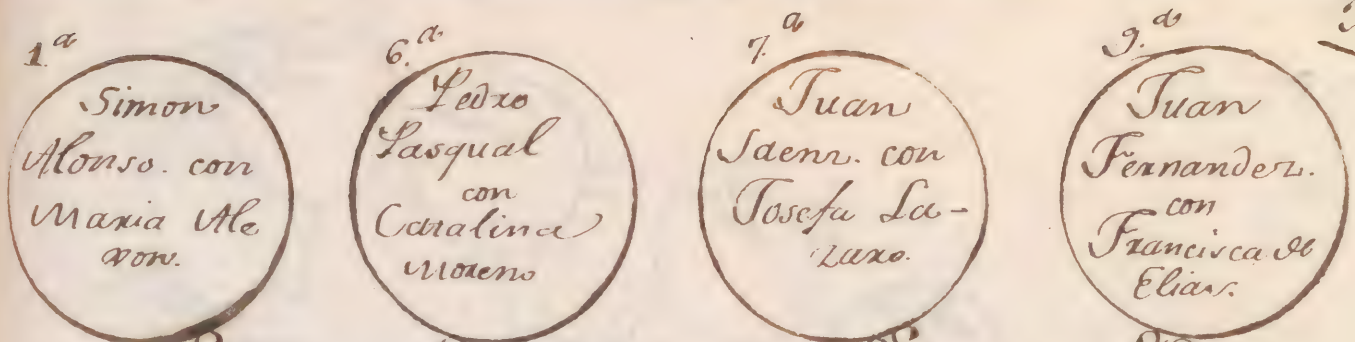 1.a
Simon
Alonso. con
Maria Ale
xon.
6.a
Pedro
Pasqual
con
Catalina
Moreno
7.a
Juan
Saenz. con
Josefa La-
zaro.
9.a
Juan
Fernandez.
con
Francisca de
Elias.